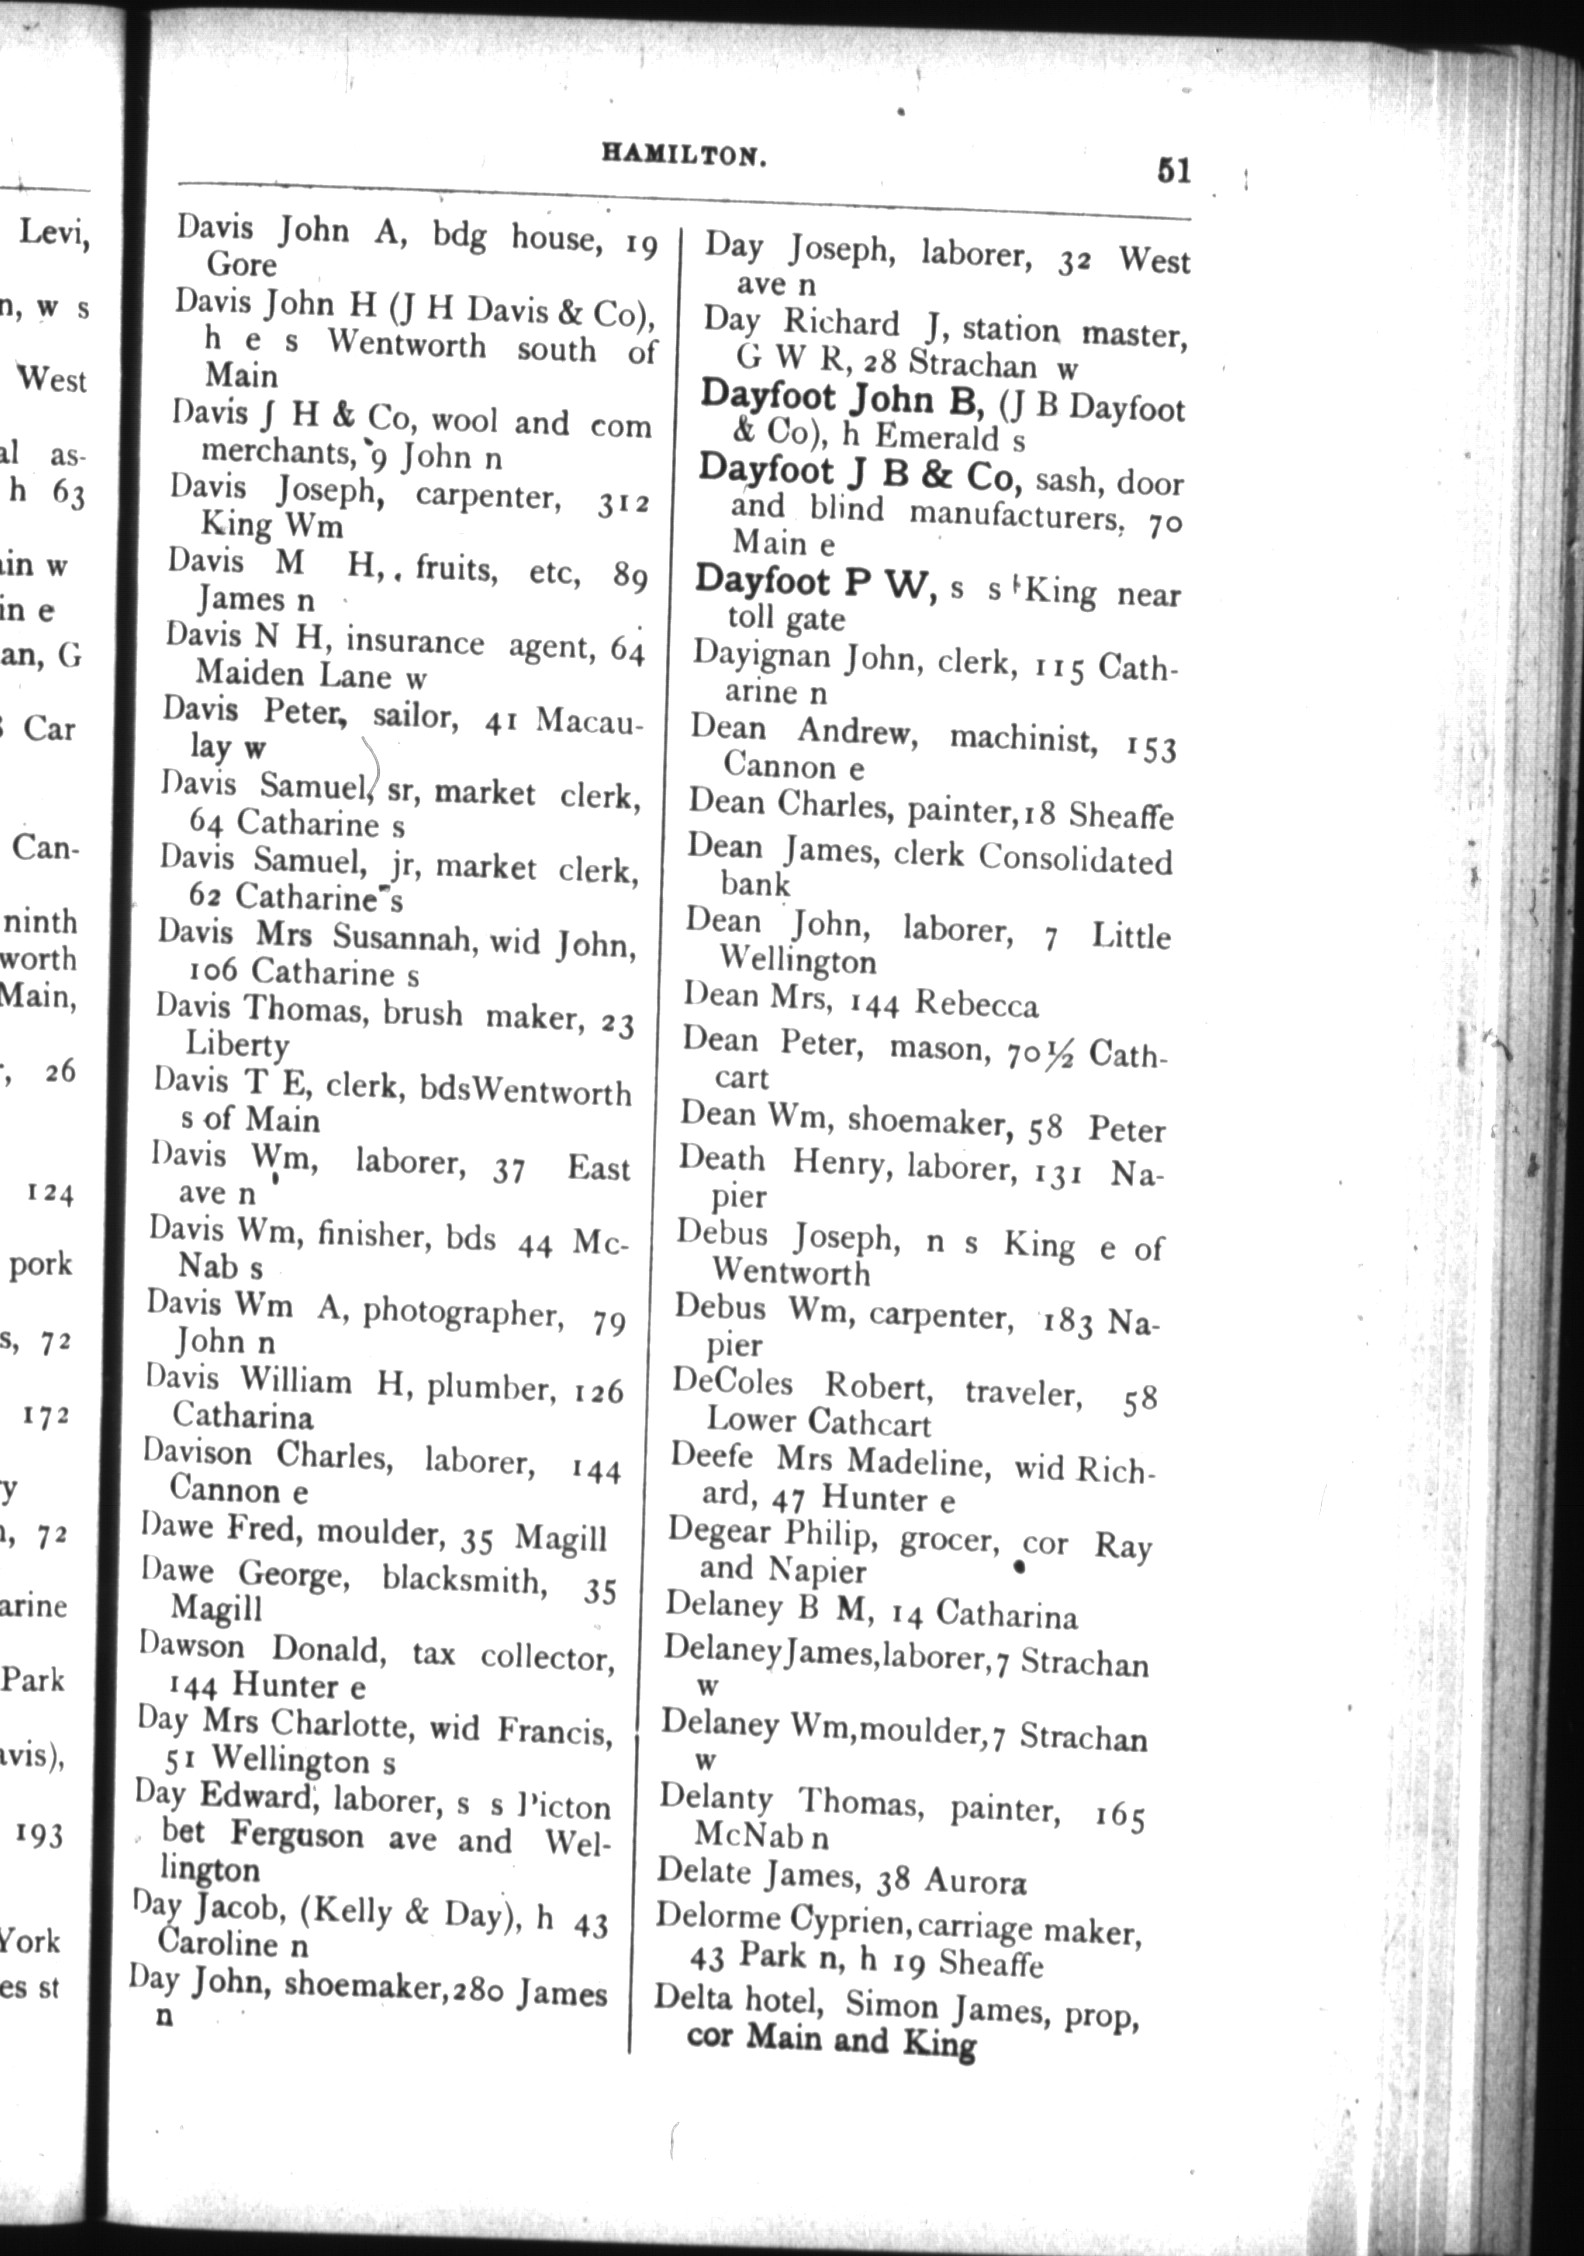 Levi,
w s
West
as-
h 63
w
e
G
Car
Can-
ninth
Main,
26
124
pork
72
172
72
Park
193
es st
HAMILTON.
51
Davis John A, bdg house, 19
Gore
Davis John H (J H Davis & Co),
h e s Wentworth south of
Main
Davis J H & Co, wool and com
merchants, 9 John n
Davis Joseph, carpenter, 312
King Wm
Davis M H, fruits, etc, 89
James n
Davis N H, insurance agent, 64
Maiden Lane w
Davis Peter, sailor, 41 Macau-
lay w
Davis Samuel, sr, market clerk,
64 Catharine s
Davis Samuel, jr, market clerk,
62 Catharine s
Davis Mrs Susannah, wid John,
106 Catharine s
Davis Thomas, brush maker, 23
Liberty
Davis T E, clerk, bdsWentworth
s of Main
Davis Wm, laborer, 37 East
ave n
Davis Wm, finisher, bds 44 Mc-
Nab s
Davis Wm A, photographer, 79
John n
Davis William H, plumber, 126
Catharina
Davison Charles, laborer, 144
Cannon e
Dawe Fred, moulder, 35 Magill
Dawe George, blacksmith, 35
Magill
Dawson Donald, tax collector,
144 Hunter e
Day Mrs Charlotte, wid Francis,
51 Wellington s
Day Edward, laborer, s s Picton
bet Ferguson ave and Wel-
lington
Day Jacob, (Kelly & Day), h 43
Caroline n
Day John, shoemaker,280 James
n
Day Joseph, laborer, 32 West
ave n
Day Richard J, station master,
G W R, 28 Strachan w
Dayfoot John B, (J B Dayfoot
& Co), h Emerald s
Dayfoot J B & Co, sash, door
and blind manufacturers, 70
Main e
Dayfoot P W, s s King near
toll gate
Dayignan John, clerk, 115 Cath-
arine n
Dean Andrew, machinist, 153
Cannon e
Dean Charles, painter,18 Sheaffe
Dean James, clerk Consolidated
bank
Dean John, laborer, 7 Little
Wellington
Dean Mrs, 144 Rebecca
Dean Peter, mason, 70½ Cath-
cart
Dean Wm, shoemaker, 58 Peter
Death Henry, laborer, 131 Na-
pier
Debus Joseph, n s King e of
Wentworth
Debus Wm, carpenter, 183 Na-
pier
DeColes Robert, traveler, 58
Lower Cathcart
Deefe Mrs Madeline, wid Rich-
ard, 47 Hunter e
Degear Philip, grocer, cor Ray
and Napier
Delaney B M, 14 Catharina
Delaney James,laborer,7 Strachan
w
Delaney Wm,moulder,7 Strachan
w
Delanty Thomas, painter, 165
McNab n
Delate James, 38 Aurora
Delorme Cyprien, carriage maker,
43 Park n, h 19 Sheaffe
Delta hotel, Simon James, prop,
cor Main and King